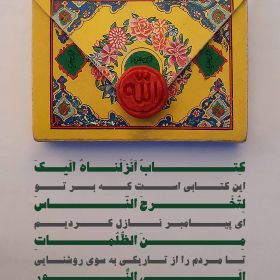 الله
كِتَابٌ أَنْزَلْنَاهُ إِلَيْكَ
این کتابی است که بر تو
لِتُخْرِجَ النَّاسَ
ای پیامبر نازل کردیم
مِنَ الظُّلُمَاتِ
تا مردم را از تاریکی به سوی روشنایی